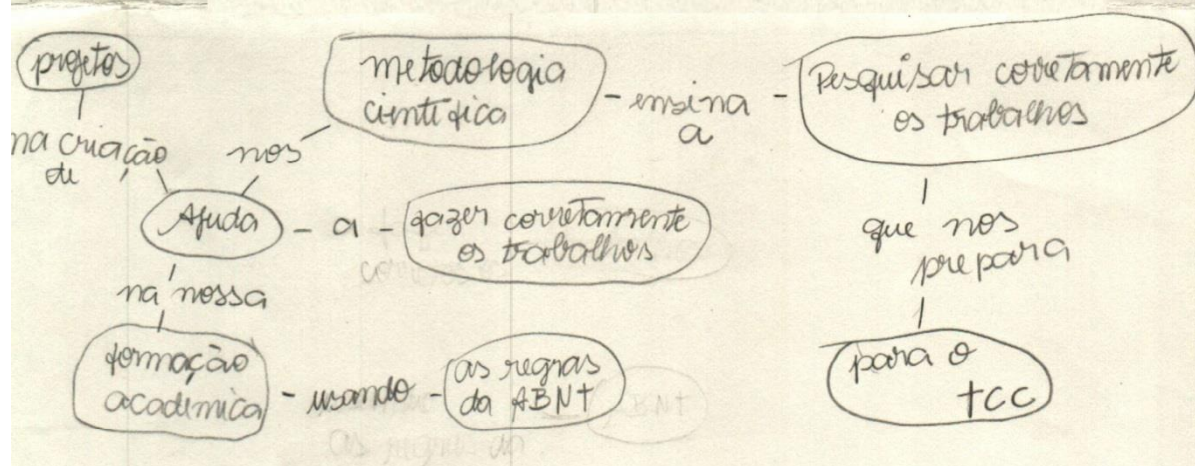 projetos
na criação
de
nos
metodologia
científica
ensina
a
Pesquisar corretamente
os trabalhos
Ajuda
a
fazer corretamente
os trabalhos
que nos
prepara
na nossa
formação
acadêmica
usando
as regras
da ABNT
para o
TCC